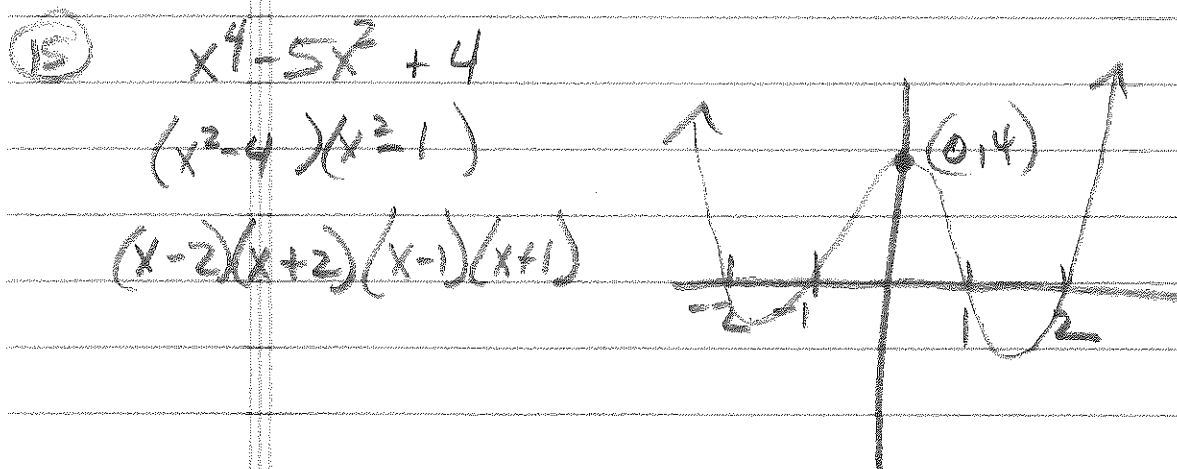 15 x⁴ - 5x² + 4
(x² - 4)(x² - 1)
(x-2)(x+2)(x-1)(x+1)
(0,4)
-2 -1 1 2